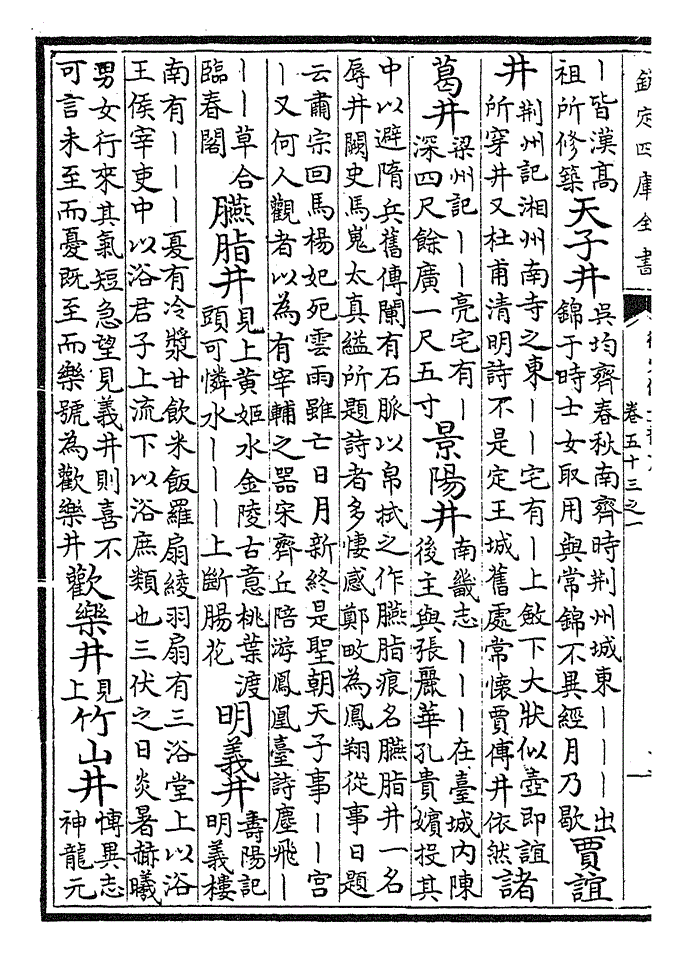 欽定四庫全書
卷五十三之一
丨皆漢髙
祖所修築
天子井
吳均齊春秋南齊時荆州城東丨丨丨出
錦于時士女取用與常錦不異經月乃歇
賈誼
井
荆州記湘州南寺之東丨丨宅有丨上斂下大狀似壺即誼
所穿井又杜甫清明詩不是定王城舊處常懷賈傅井依然
諸
葛井
梁州記丨丨亮宅有丨
深四尺餘廣一尺五寸
景陽井
南畿志丨丨丨在臺城内陳
後主與張麗華孔貴嬪投其
中以避隋兵舊傳闌有石脈以帛拭之作臙脂痕名臙脂井一名
辱井闕史馬嵬太真縊所題詩者多悽感鄭畋為鳳翔從事日題
云肅宗回馬楊妃死雲雨雖亡日月新終是聖朝天子事丨丨宫
丨又何人觀者以為有宰輔之器宋齊丘陪游鳳凰臺詩塵飛丨
丨丨草合
臨春閣
臙脂井
見上黄姬水金陵古意桃葉渡
頭可憐水丨丨丨上斷腸花
明義井
壽陽記
明義樓
南有丨丨丨夏有冷漿甘飲米飯羅扇綾羽扇有三浴堂上以浴
王侯宰吏中以浴君子上流下以浴庶類也三伏之日炎暑赫曦
男女行來其氣短急望見義井則喜不
可言未至而憂既至而樂號為歡樂井
歡樂井
見
上
竹山井
慱異志
神龍元